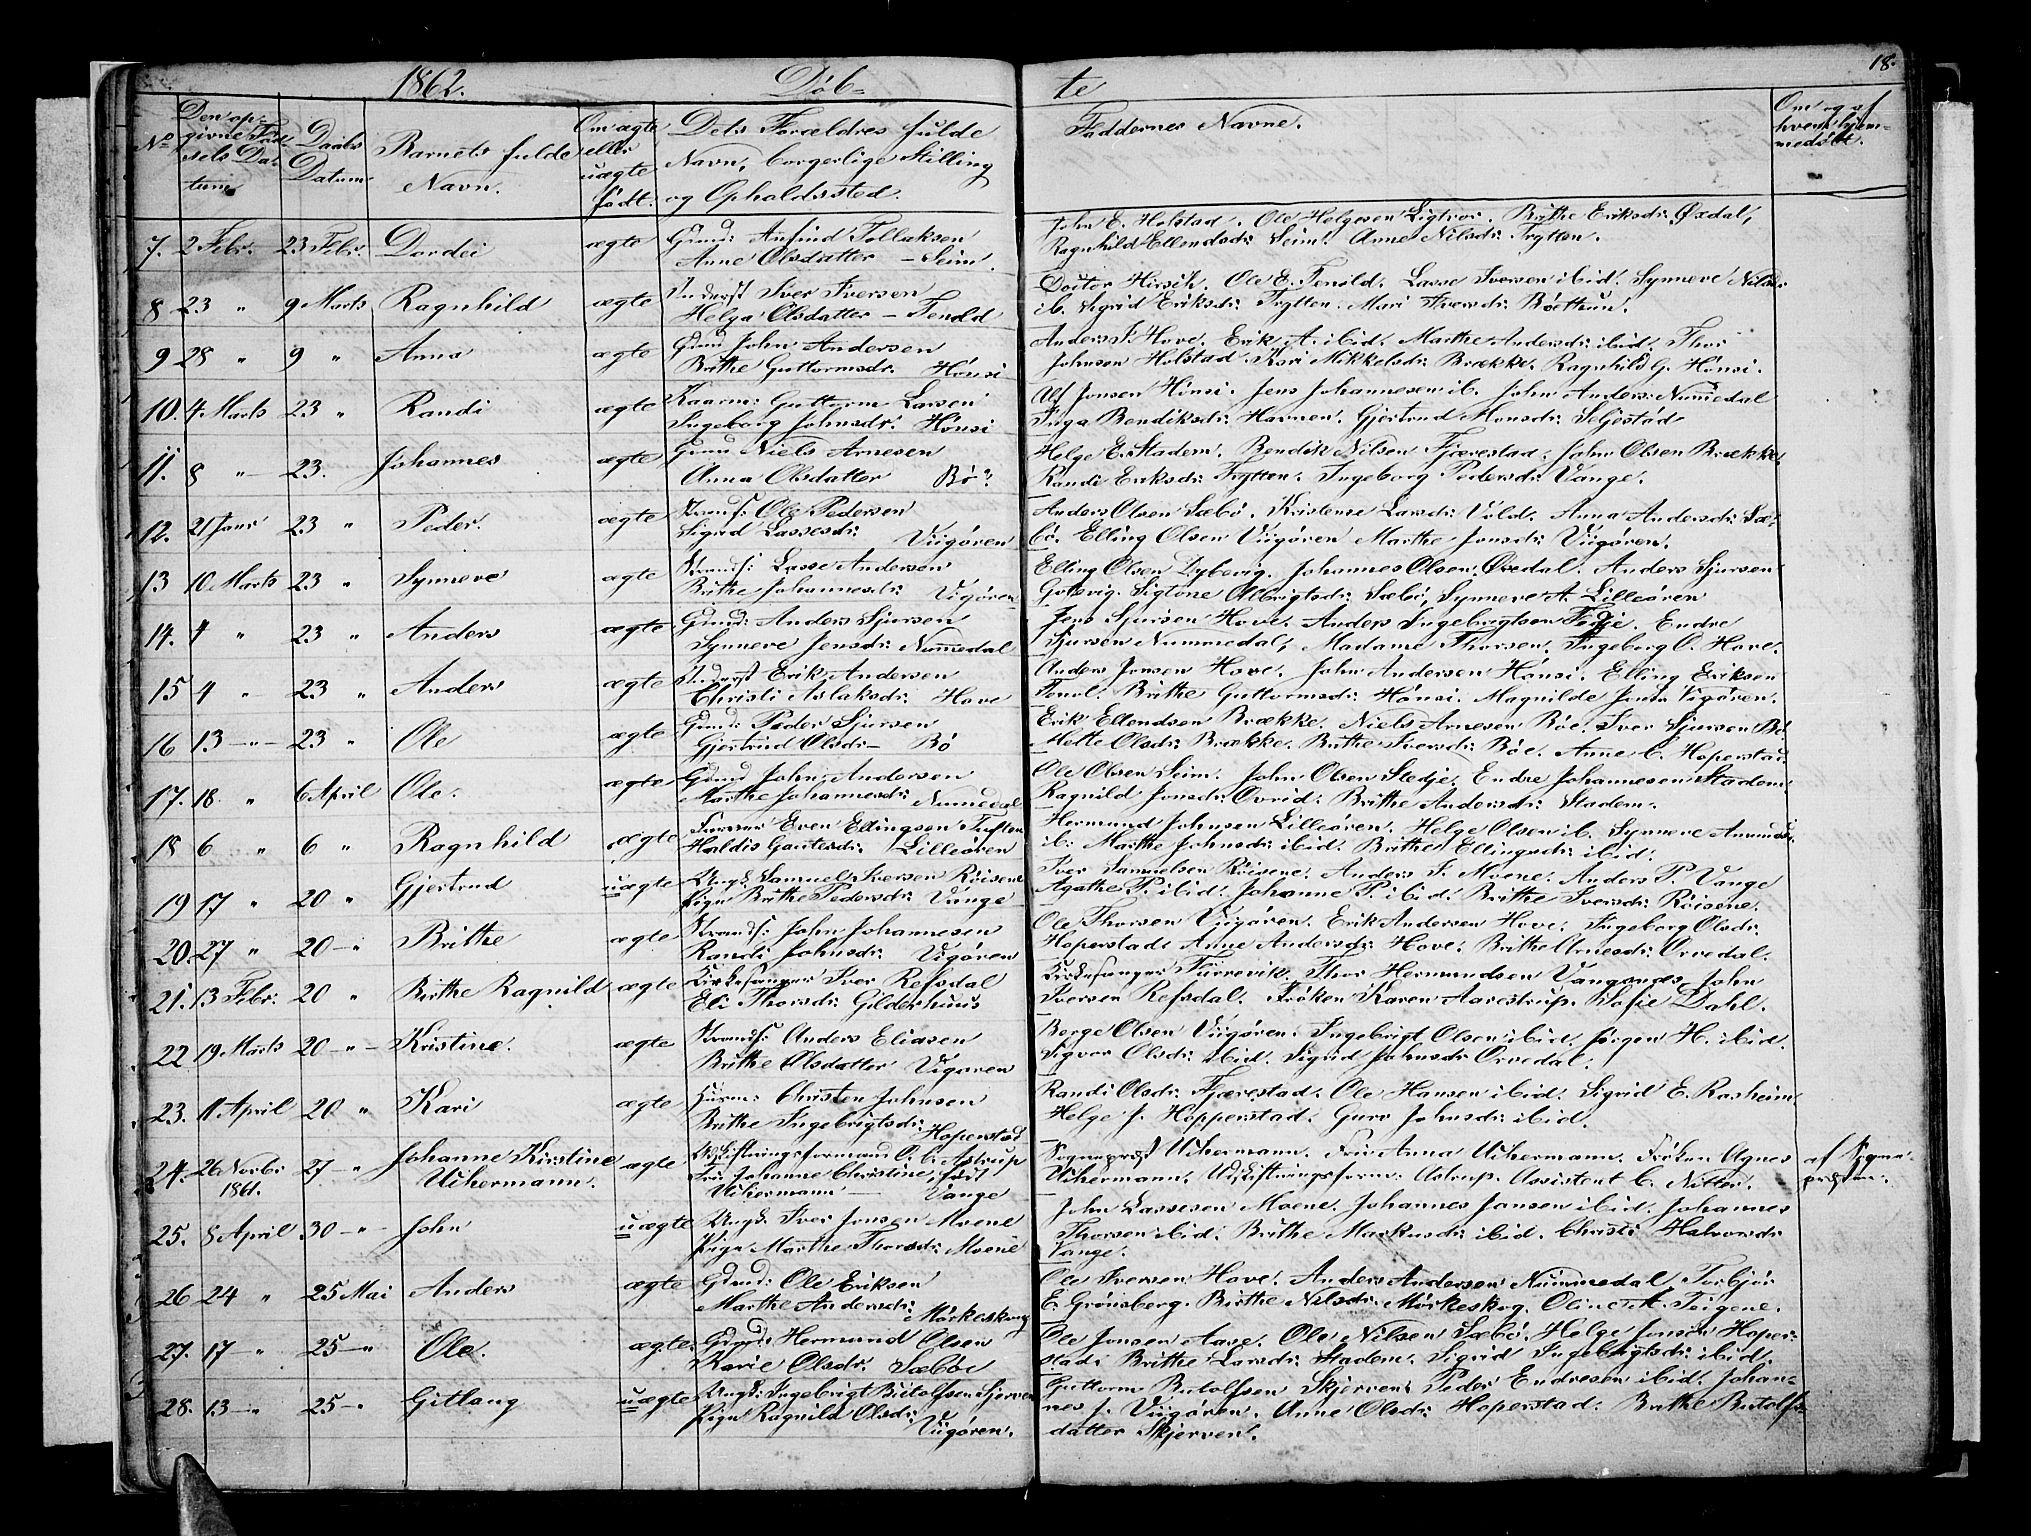 18.
1862. Döb- te
No
Den op-
givne Föd-
sels Da-
tum
Daabs
Datum
Barnets fulde
Navn.
Om ægte
eller
uægte
födt.
Dets Forældres fulde
Navn, borgerlige Stilling
og Opholdssted.
Faddernes Navne.
Om og af
hvem hjem-
medöbt.
7. 2 Febr. 23 Febr. Dordei ægte Gmd: Anfind Tollaksen
Anne Olsdatter - Seim
John E. Holstad. Ole Helgesen Ligtvor. Brithe Eriksdr: Öxdal,
Ragnhild Ellendsdr: Seim. Anne Nilsdr: Trytten.
8 23 " 9 Marts Ragnhild ægte Inderst Iver Iversen
Helga Olsdatter - Tenold
Doctor Hirsch. Ole E. Tenold. Lasse Iversen ibid. Synneve Nilsdr
ib. Sigrid Eriksdr: Trytten. Mari Iversdr: Böettun.
9 28 " 9 " Anna ægte Gmd John Andersen
Brithe Guttormsdr: Hönsi
Anders I. Hove. Erik A. ibid. Marthe Andersdr: ibid. Thor
Johnsen Holstad. Kari Mikkelsdr: Brække. Ragnhild G. Hönsi.
10. 4 Marts 23 " Randi ægte Kaarm: Guttorm Larsen
Ingeborg Johnsdr: Hönsi
Alf Jonsen Hönsi. Jens Johannesen ib. John Anders. Numedal
Inga Bendiksdr: Hamen. Gjertrud Monsdr: Seljestöd
11. 8 " 23. Johannes ægte Gmd Niels Arnesen
Anna Olsdatter Bö
Helge E. Stadem. Bendik Nilsen Fjærestad. John Olsen Brække.
Randi Eriksdr: Trytten. Ingeborg Pedersdr: Vange.
12. 21 Janr 23 " Peder. ægte Strands: Ole Pedersen
Sigrid Lassesdr: Viigören
Anders Olsen Sæbö. Kristense Larsdr: Vold. Anna Andersdr: Sæ-
bö. Elling Olsen Viigören Marthe Jonsdr: Viigören.
13 10 Marts 23 " Synneve ægte Strands: Lasse Andersen
Brithe Johannesdr: Vigören
Elling Olsen Dybevig. Johannes Olsen Orvedal. Anders Sjursen
Gotevig. Sigtone Olbrigtsdr: Sæbö, Synneve A. Lilleören
14. 4 " 23 " Anders ægte Gmd: Anders Sjursen
Synneve Jensdr: Numedal
Jens Sjursen Hove. Anders Ingebrigtson Feije. Endre
Sjursen Nummedal, Madame Thorsen. Ingeborg O. Hove.
15 4 " 23 " Anders ægte Inderst Erik Andersen
Christi Aslaksdr: Hove
Anders Jonsen Hove. John Andersen Hönsi. Elling Eriksen
Tenol. Brithe Guttormsdr: Hönsi. Magnilde Jonsdr Vigören.
16 13 " 23 " Ole ægte Gmd: Peder Sjursen
Gjertrud Olsdr - Bö
Erik Ellendsen Brække. Niels Arnesen Böe. Iver Sjursen Bö
Mette Olsdr: Brække. Brithe Iversdr: Böe. Anne C. Hoperstad
17. 18 " 6 April Ole. ægte Gmd John Andersen
Marthe Johannesdr: Numedal
Ole Olsen Seim. John Olsen Sledje. Endre Johannesen Stadem.
Ragnild Jonsdr: Ovrid: Brithe Andersdr: Stadem.
18 6 " 6 " Ragnhild ægte Even Ellingsen Tuften
Haldis Gautesdr: Lilleören
Hermund Johnsen Lilleören. Helge Olsen ib. Synneve Amundsdr:
ib: Marthe Johnsdr: ibid: Brithe Ellingsdr: ibid.
19 17 " 20 " Gjertrud uægte Ungk. Samuel Iversen Röisene
Pige Brithe Pedersdr: Vange
Iver Samuelsen Röisene. Anders I. Moene. Anders P. Vange
Agathe P. ibid. Johanne P. ibid. Brithe Iversdr: Röisene.
20. 27 " 20 " Brithe ægte Strands: John Johannesen
Randi Johnsdr: Vigören
Ole Thorsen Viigören. Erik Andersen Hove. Ingeborg Olsdr.
Hoperstad: Anne Andersdr: Hove. Brithe Arnesdr: Orvedal.
21. 13 Febr: 20 " Brithe Ragnild ægte Kirkesanger Iver Refsdal
Eli Thorsdr: Gilderhuus
Kirkesanger Turrevik. Thor Hermundsen Vangsnes, John
Iversen Refsdal. Fröken Karen Aarestrup. Sofie Dahl.
22 19 Marts 20 " Kristine. ægte Strands: Anders Eliasen
Brithe Olsdatter Vigören
Börge Olsen Viigören. Ingebrigt Olsen ibid. Jörgen H. ibid.
Sigvor Olsdr: ibid. Sigrid Johnsdr: Orvedal.
23. 11 April 20 " Kari ægte Huusm: Christen Johnsen
Brithe Ingebrigtsdr: Hoperstad
Randi Olsdr: Fjærestad. Ole Hansen ibid. Sigrid E. Rasheim.
Helge J. Hopperstad. Guro Johnsdr: ibid.
24. 26 Novbr
1861. 27 " Johanne Kirstine
Uchermann. ægte Udskiftningsformand O. C. Astrup
Fru Johanne Christine, född
Uchermann - Vange
Sognepræst Uchermann. Fru Anna Uchermann. Fröken Agnes
Uchermann, Udskiftningsform: Astrup. Assistent C. Nitter.
af Sogne-
præsten.
25. 8 April 30 " John uægte Ungk. Iver Jonsen Moene
Pige Marthe Thorsdr: Moene
John Lassesen Moene. Johannes Jansen ibid. Johannes
Thorsen ibid: Brithe Markusdr: ibid. Christi Halvorsdr
Vange.
26 24 " 25 Mai Anders ægte Gmd: Ole Eriksen
Marthe Andersdr: Mörkeskoug
Ole Iversen Hove. Anders Andersen Nummedal Torbjör
E. Grönsberg. Birthe Nilsdr: Mörkeskog. Oline T. M. Teigene.
27. 17 " 25 " Ole. ægte Gmd: Hermund Olsen
Karie Olsdr: Sæböe
Ole Jonsen Aase. Ole Nilsen Sæbö. Helge Jonsen Hoper-
stad: Brithe Larsdr: Stadem. Sigrid Ingebrigtsdr: ibid.
28. 13 " 25 " Gitlaug uægte Ungk: Ingebrigt Botolfsen Sjerven
Pige Ragnild Olsdr: Viigören.
Guttorm Botolfsen Skjerven. Peder Endresen ibid. Johan-
nes J. Viigören. Anne Olsdr: Hoperstad. Brithe Botolfs-
datter Skjerven.